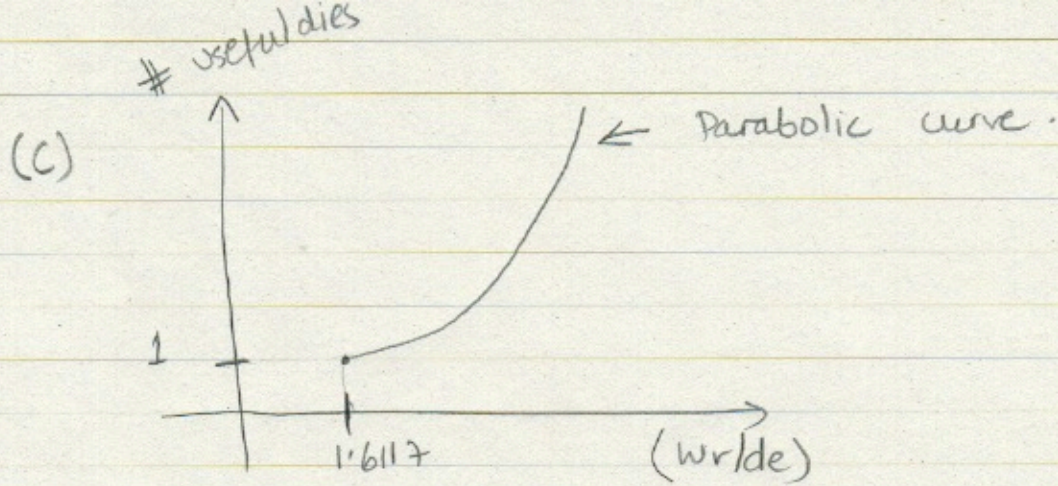 # useful dies
(C)
← Parabolic curve.
1
1.6117
(Wr/de)